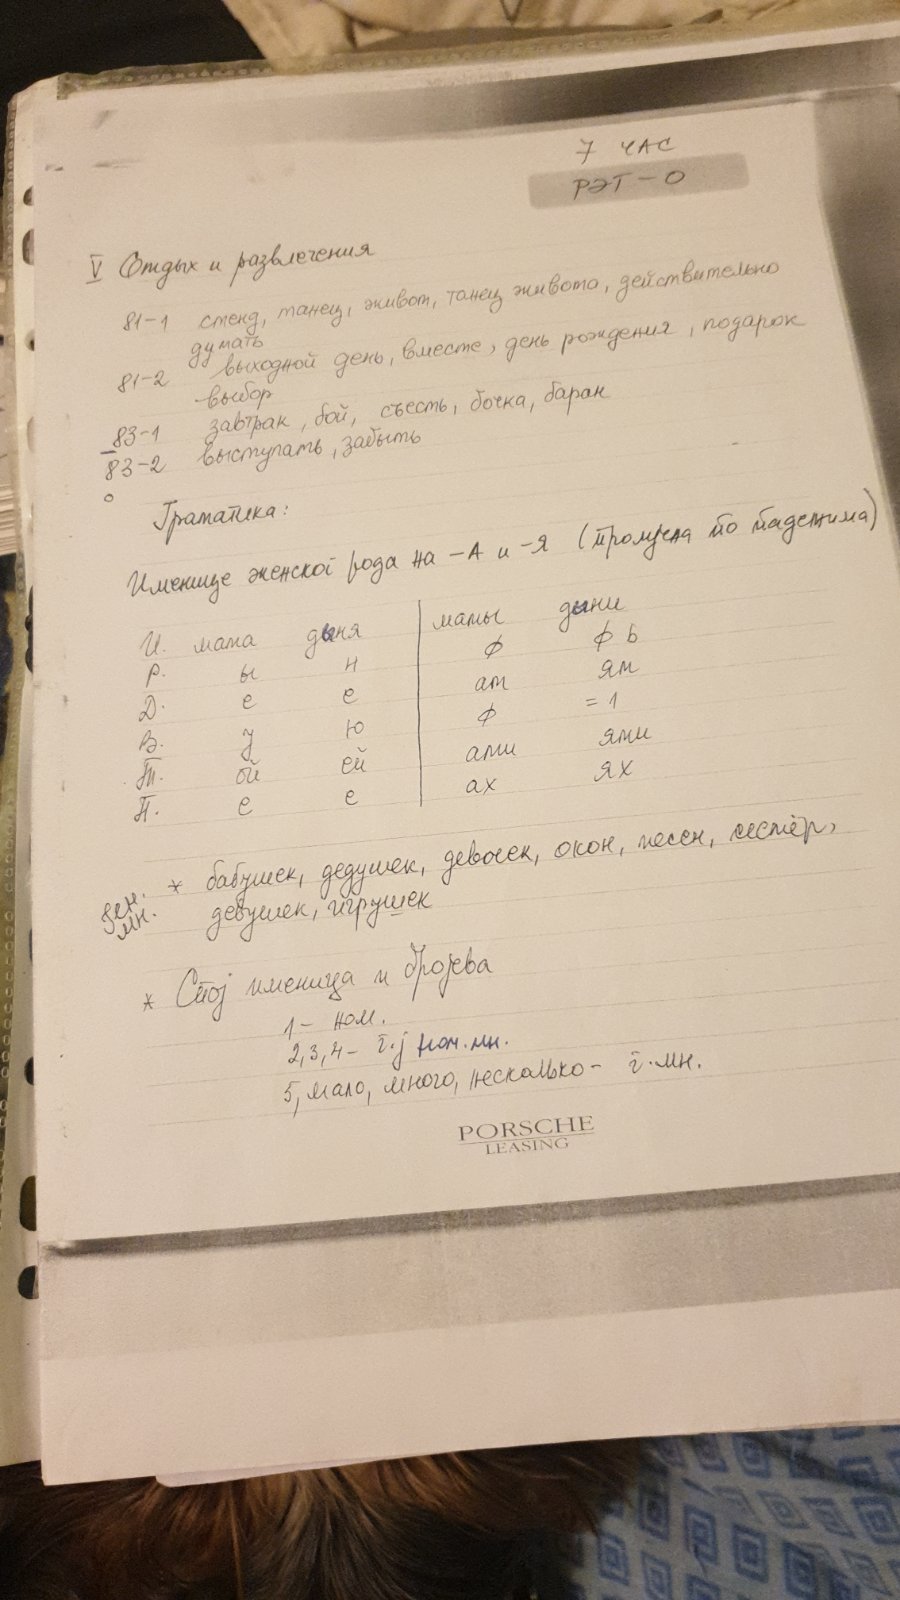 7 ЧАС
РЭТ-О
V Отдых и развлечения
81-1 стенд, танец, живот, танец живота, действительно
думать
81-2 выходной день, вместе, день рождения, подарок
выбор
83-1 завтрак, бой, съесть, бочка, баран
83-2 выступать, забыть
Граматика:
Именице женској рода на -А и -Я (промјена по падежима)
И. мама дыня мамы дыни
Р. ы и ф ф ь
Д. е е ам ям
В. у ю ф = 1
Т. ой ей ами ями
П. е е ах ях
ген. мн. * бабушек, дедушек, девочек, окон, песен, сестёр,
девушек, игрушек
* Спој именица и бројева
1 - ном.
2,3,4 - г.ј ном. мн.
5, мало, много, несколько - г. мн.
PORSCHE
LEASING